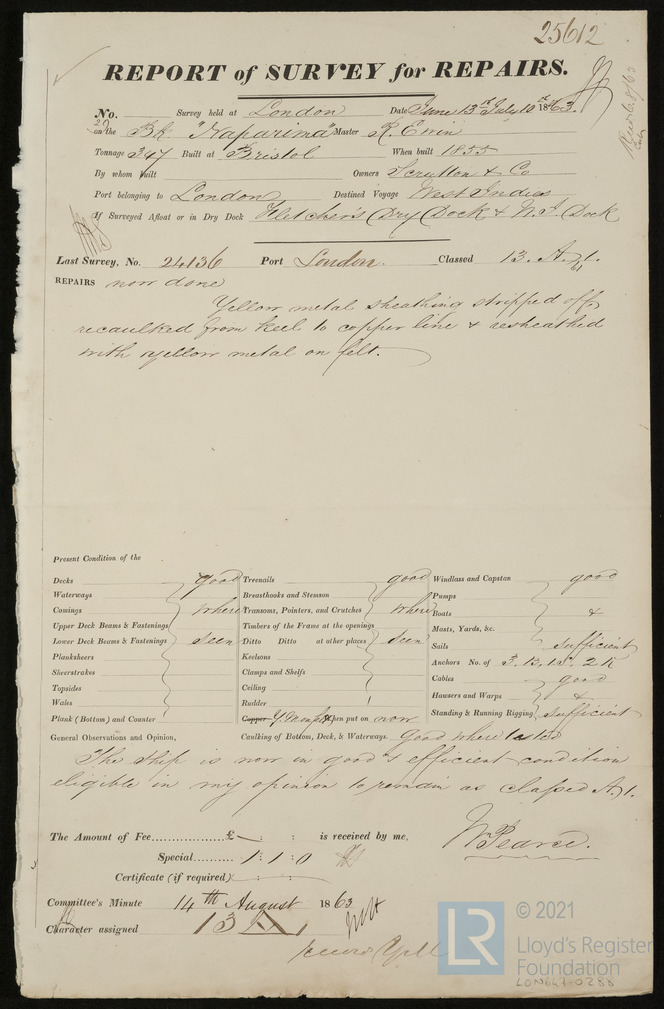 25612
REPORT of SURVEY for REPAIRS.
No. Survey held at London Date June 13th July 10th 1863.
on the Bk "Naparima" Master R. Ewin
Tonnage 347 Built at Bristol When built 1855
By whom built Owners Scrutton & Co
Port belonging to London Destined Voyage West Indies
If Surveyed Afloat or in Dry Dock Fletcher's Dry Dock & W. I. Dock
Last Survey, No. 24136 Port London. Classed 13. A. 1.
61
REPAIRS now done
Yellow metal sheathing stripped off,
recaulked from keel to copper line & resheathed
with yellow metal on felt.
Present Condition of the
Decks good Treenails good Windlass and Capstan good
Waterways Breasthooks and Stemson Pumps
Comings where Transoms, Pointers, and Crutches where Boats &
Upper Deck Beams & Fastenings Timbers of the Frame at the openings Masts, Yards, &c.
Lower Deck Beams & Fastenings seen Ditto Ditto at other places seen Sails sufficient
Planksheers Keelsons Anchors No. of 3. B. 1 S. 2 K
Sheerstrakes Clamps and Shelfs Cables good
Topsides Ceiling Hawsers and Warps &
Wales Rudder Standing & Running Rigging sufficient
Plank (Bottom) and Counter Copper Y. Metal when put on now
General Observations and Opinion, Caulking of Bottom, Deck, & Waterways. good where tested
The ship is now in good & efficient condition
eligible in my opinion to remain as classed A. 1.
The Amount of Fee £ — : : is received by me,
Special 1 : 1 : 0
Wm Pearce.
Certificate (if required)
Committee's Minute 14th August 1863
Character assigned 13 A 1
© 2021
LR
Lloyd's Register
Foundation
LON647-0288